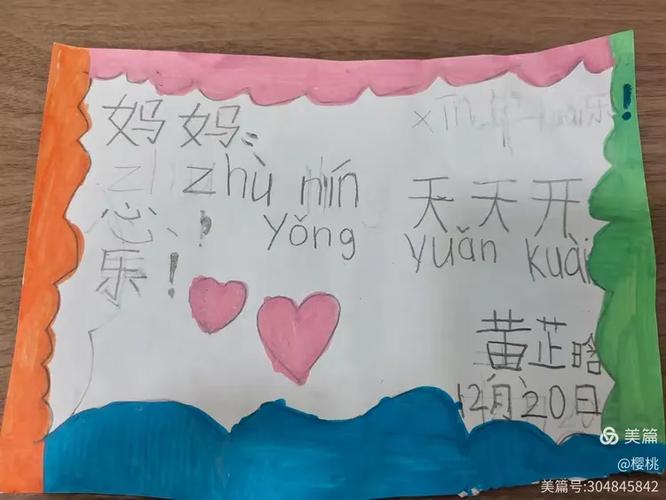 妈妈：
zhù nín 天天开
心！ yǒng yuǎn kuài
乐！
黄芷晗
12月20日
美篇
@樱桃
美篇号:304845842